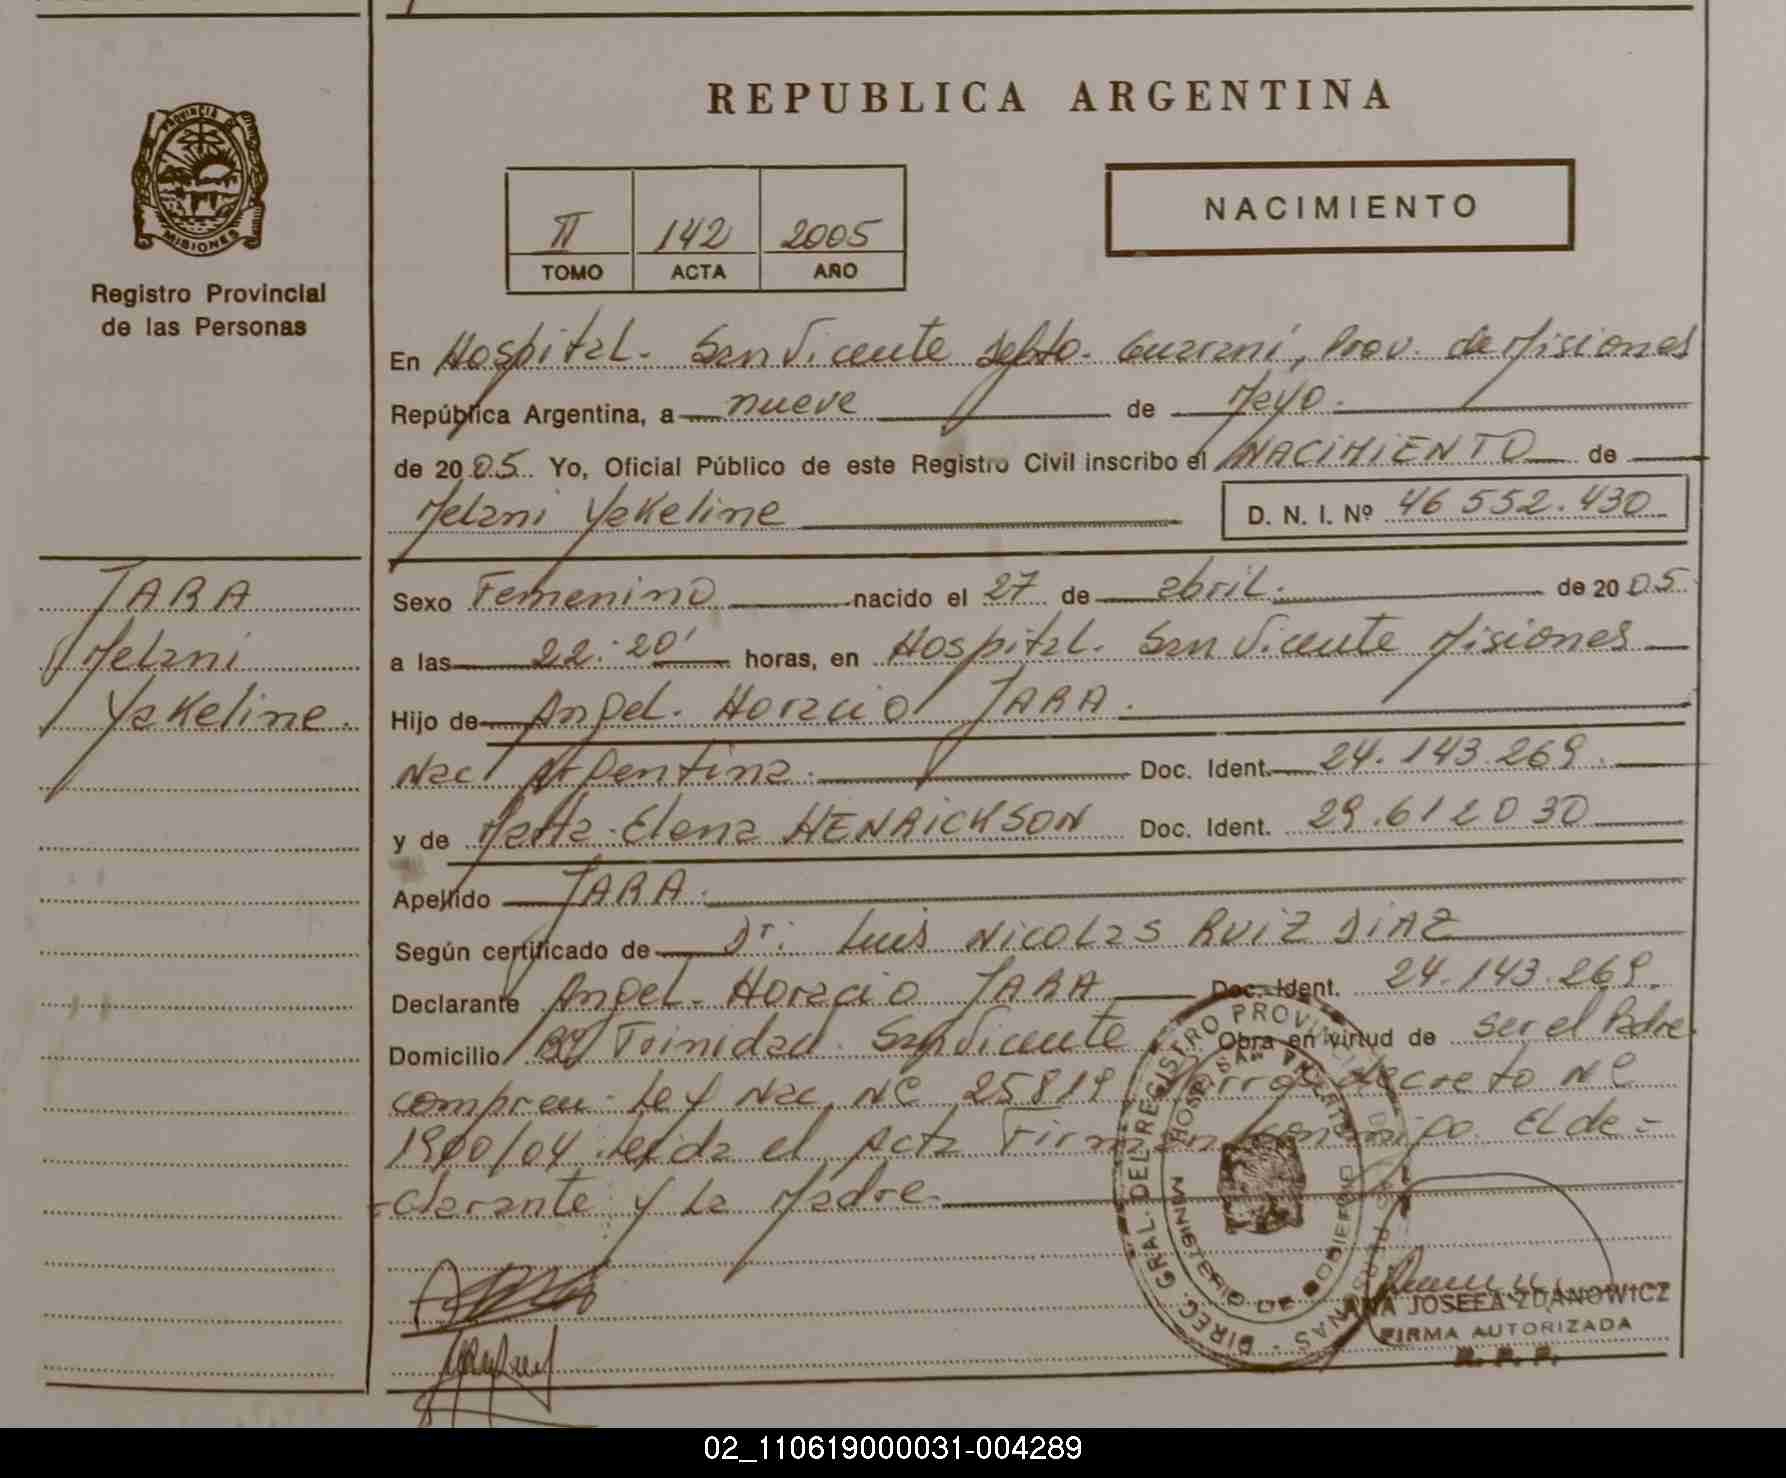 REPUBLICA ARGENTINA
PROVINCIA DE
MISIONES
Registro Provincial
de las Personas
NACIMIENTO
II 142 2005
TOMO ACTA AÑO
En Hospital. San Vicente Depto. Guaraní, Prov. de Misiones
República Argentina, a nueve de Mayo.
de 2005. Yo, Oficial Público de este Registro Civil inscribo el NACIMIENTO de
Melani Yakeline D. N. I. Nº 46 552.430
TARA
Melani
Yakeline.
Sexo Femenino nacido el 27 de abril. de 2005.
a las 22:20' horas, en Hospital. San Vicente Misiones
Hijo de Angel. Horacio TARA.
Nac. Argentina. Doc. Ident. 24.143.269.
y de Marta. Elena HENRICKSON Doc. Ident. 29.612030
Apellido TARA.
Según certificado de Dr: Luis Nicolas RUIZ DIAZ
Declarante Angel. Horacio TARA Doc. Ident. 24.143.269.
Domicilio Bº Trinidad. San Vicente Obra en virtud de ser el Padre.
compren. Ley Nac. Nº 25819 Prorroga decreto Nº
1900/04. Leida el Acta Firman conmigo. El de=
=clarante y La Madre.
DIREC. GRAL DEL REGISTRO PROVINCIAL DE LAS PERSONAS
HOSP. SAN VICENTE
MINISTERIO DE GOBIERNO
ANA JOSEFA ZDANOWICZ
FIRMA AUTORIZADA
R. P. P.
02_110619000031-004289